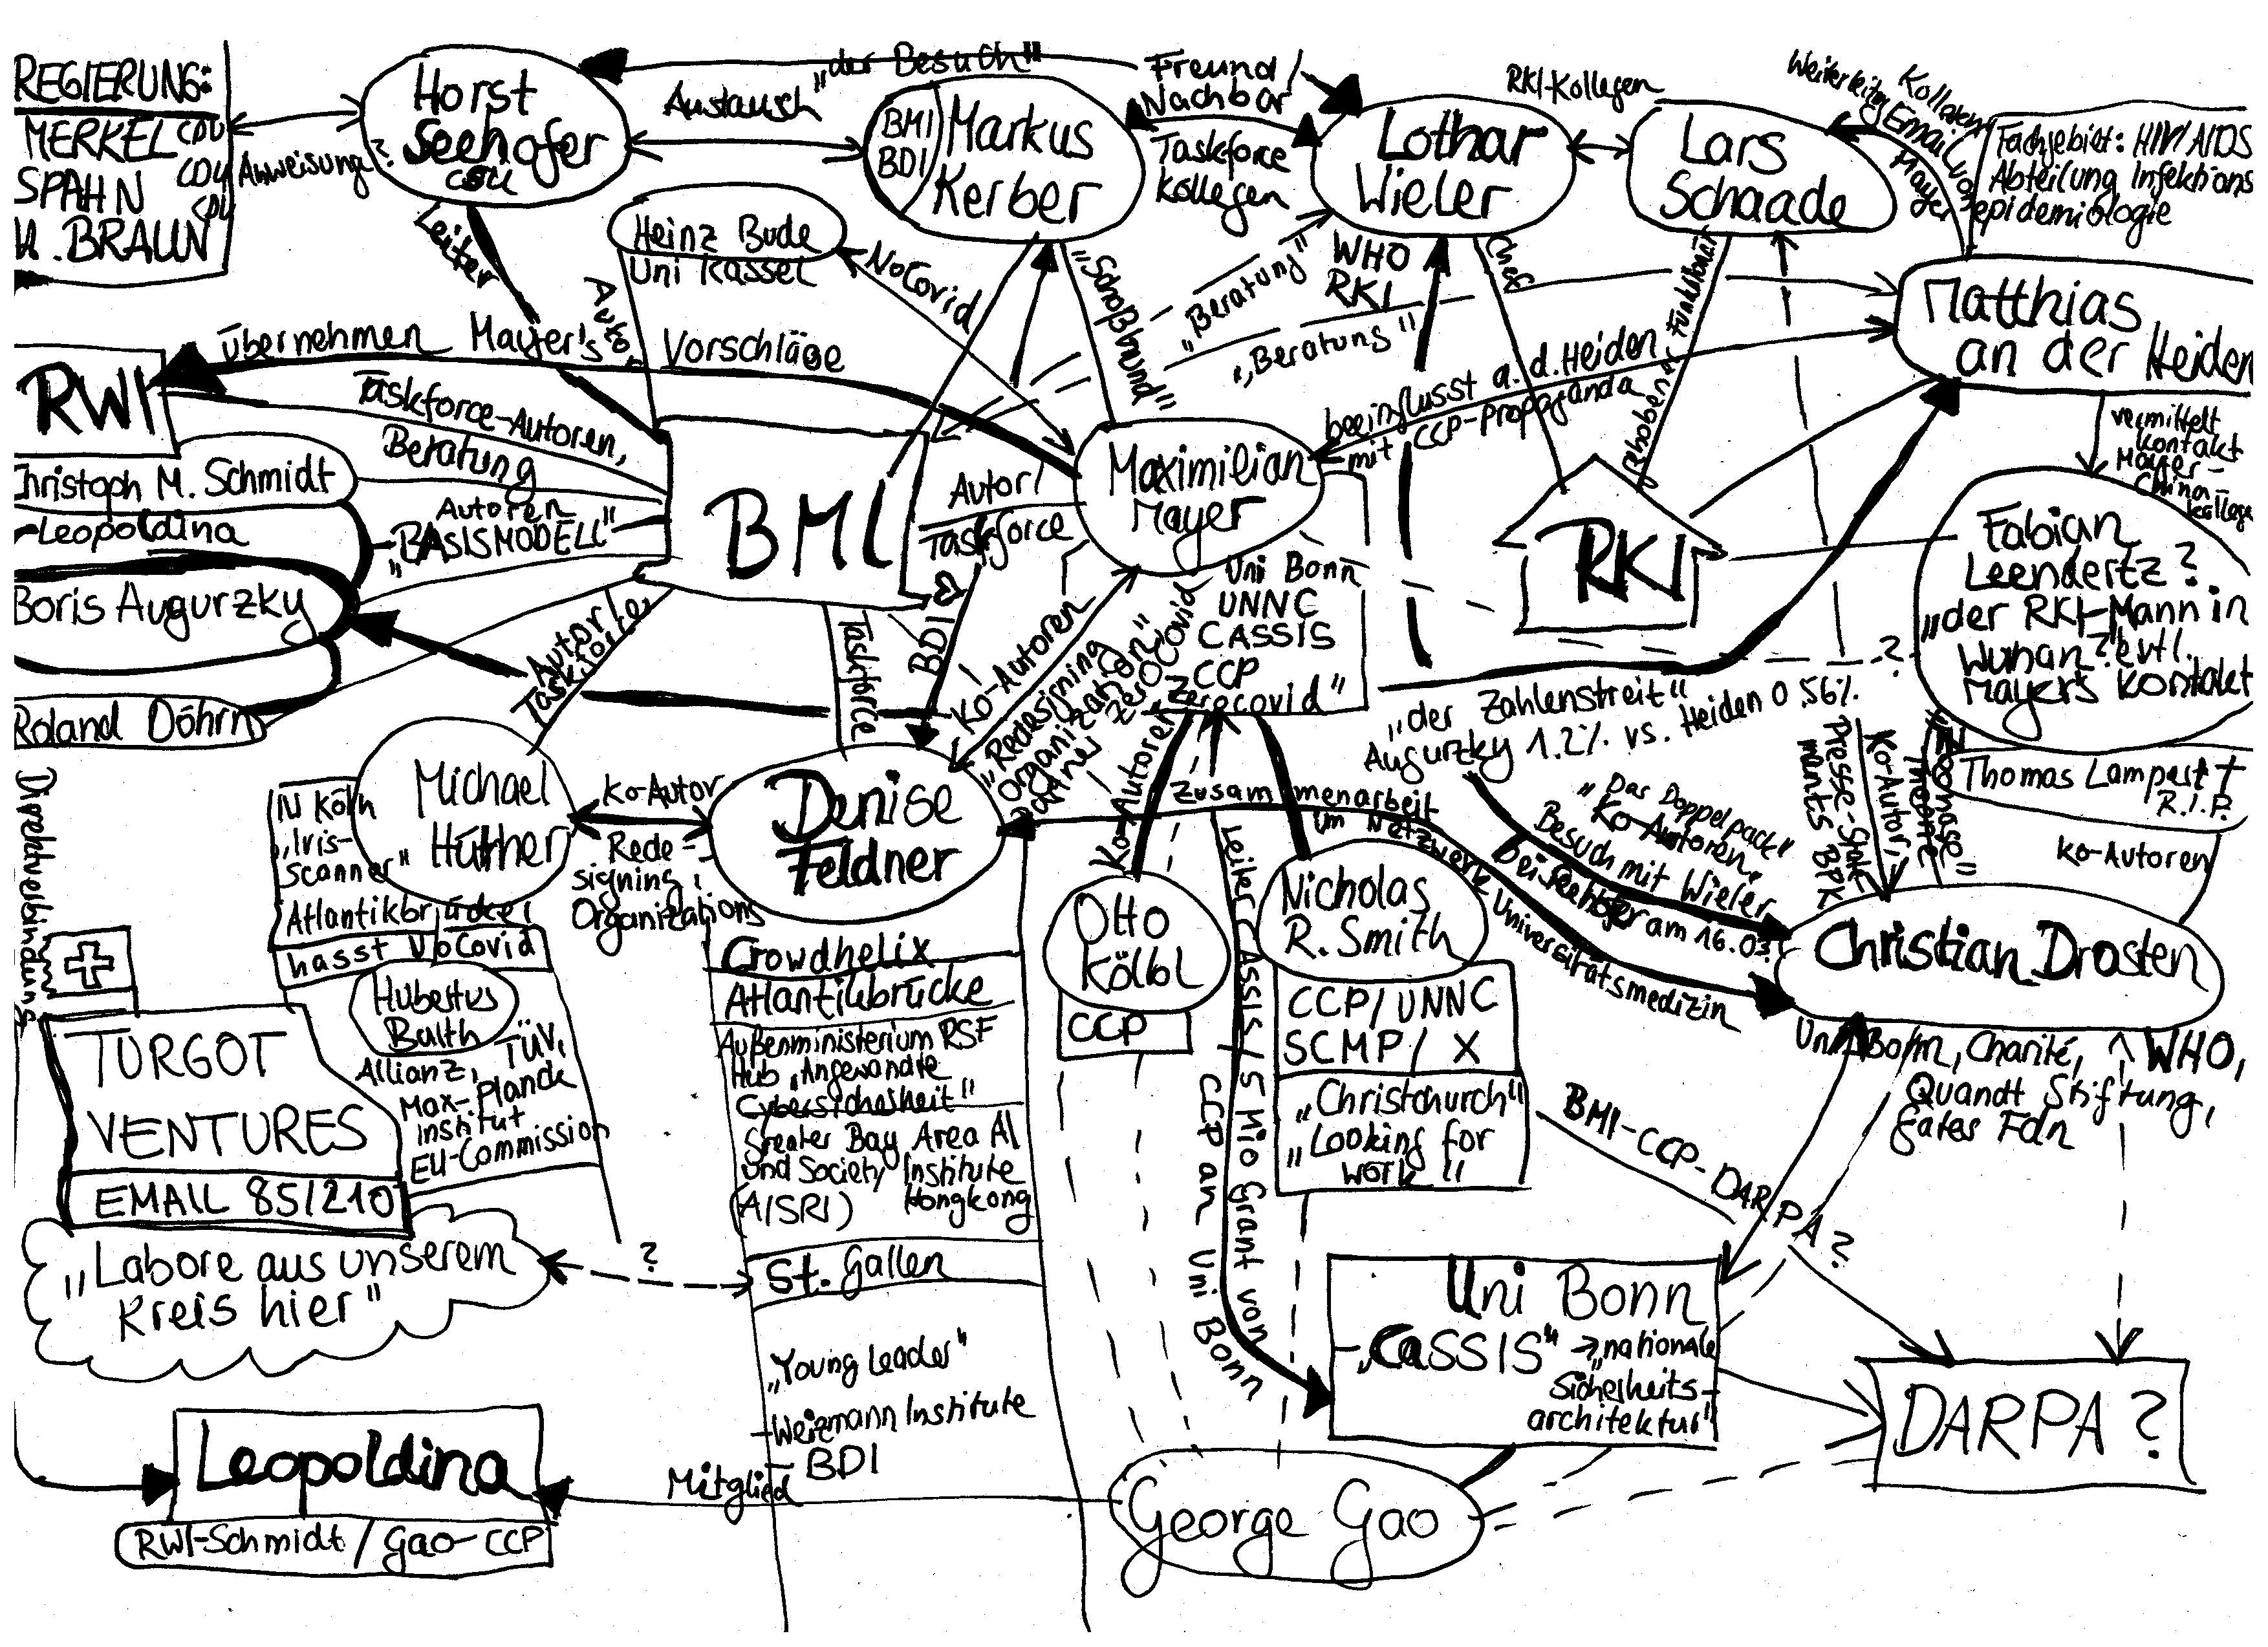 REGIERUNG:
MERKEL CDU
SPAHN CDU
H. BRAUN CDU
Anweisung?
Horst
Seehofer
CSU
„der Besuch"
Austausch
BMI
BDI
Markus
Kerber
Freund/
Nachbar
Taskforce
Kollegen
Lothar
Wieler
WHO
RKI
RKI-Kollegen
Lars
Schaade
Kollegen
Weiterleitg Email von
Mayer
Fachgebiet: HIV/AIDS
Abteilung Infektions
epidemiologie
Matthias
an der Heiden
Leiter
Heinz Bude
Uni Kassel
Autor
NoCovid
„Schoßhund"
„Beratung"
„Beratung"
Chef
übernehmen Mayer's Vorschläge
RWI
Taskforce-Autoren,
Beratung
Christoph M. Schmidt
-Leopoldina
Autoren
„BASISMODELL"
Boris Augurzky
Roland Döhrn
BMI
Autor/
Taskforce
Maximilian
Mayer
beeinflusst a. d. Heiden
mit CCP-Propaganda
Uni Bonn
UNNC
CASSIS
CCP
Zerocovid"
RKI
vermittelt
Kontakt
Mayer-
China-
Kollege
Fabian
Leendertz?
„der RKI-Mann in
Wuhan? evtl.
Mayers Kontakt
Thomas Lampert †
R.I.P.
Ko-Autoren
Autor/
Taskforce
Taskforce
BDI
Ko-Autoren
„Redesigning
Organizations"
Partner ZeroCovid
?
„der Zahlenstreit"
Augurzky 1.2% vs. Heiden 0,56%
Direktverbindung
Michael
Hüther
Ko-Autor
Redesigning
Organizations
Denise
Feldner
IW Köln
„Iris-
scanner"
Atlantikbrücke!
hasst NoCovid
Hubertus
Allianz, TÜV,
Max-Planck
Institut
EU-Commission
TURGOT
VENTURES
EMAIL 85/210
„Labore aus unserem
Kreis hier"
?
Crowdhelix
Atlantikbrücke
Außenministerium RSF
Hub „Angewandte
Cybersicherheit"
Greater Bay Area AI
und Society Institute
(AISRI) Hongkong
St. Gallen
„Young Leader"
-Weizmann Institute
- BDI
Ko-Autoren
Otto
Kölbl
CCP
Zusammenarbeit
im Netzwerk Universitätsmedizin
Leiter CASSIS / 5 Mio Grant von
CCP an Uni Bonn
Nicholas
R. Smith
CCP/UNNC
SCMP/ X
„Christchurch"
„Looking for
work"
„Das Doppelpack"
Ko-Autoren,
Besuch mit Wieler
bei Seehofer am 16.03.
Presse-State-
ments BPK
Ko-Autor,
Christian Drosten
Uni Bonn, Charité, WHO,
Quandt Stiftung,
Gates Fdn
BMI-CCP-DARPA?
Uni Bonn
- „CASSIS" → „nationale
Sicherheits-
architektur"
DARPA?
Leopoldina
RWI-Schmidt / Gao-CCP
Mitglied
George Gao